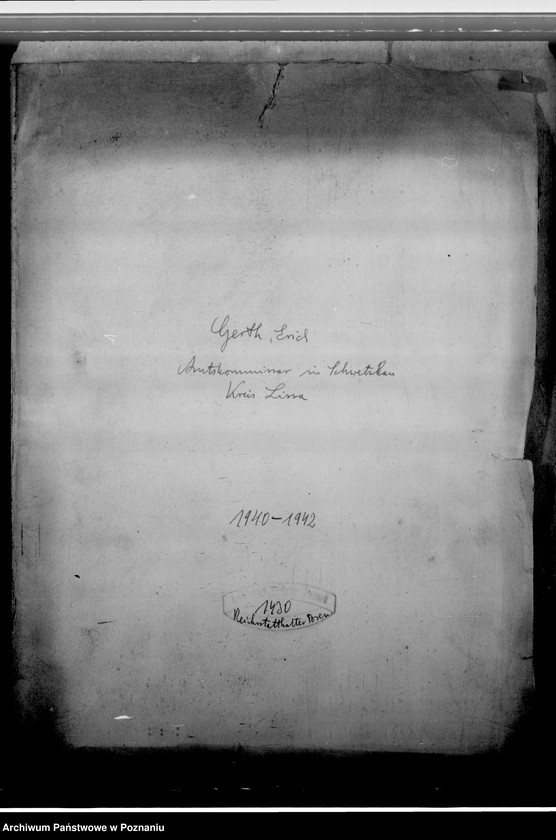 Gerth, Erich
Amtskommissar in Schwetzkau
Kreis Lissa
1940-1942
1430
Reichsstatthalter Posen
Archiwum Państwowe w Poznaniu